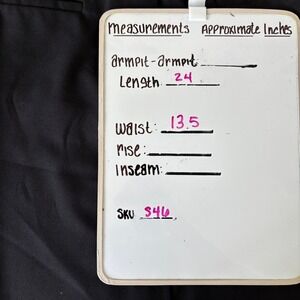 measurements Approximate Inches
armpit-armpit
Length 24
waist: 13.5
rise:
Inseam:
SKU 346